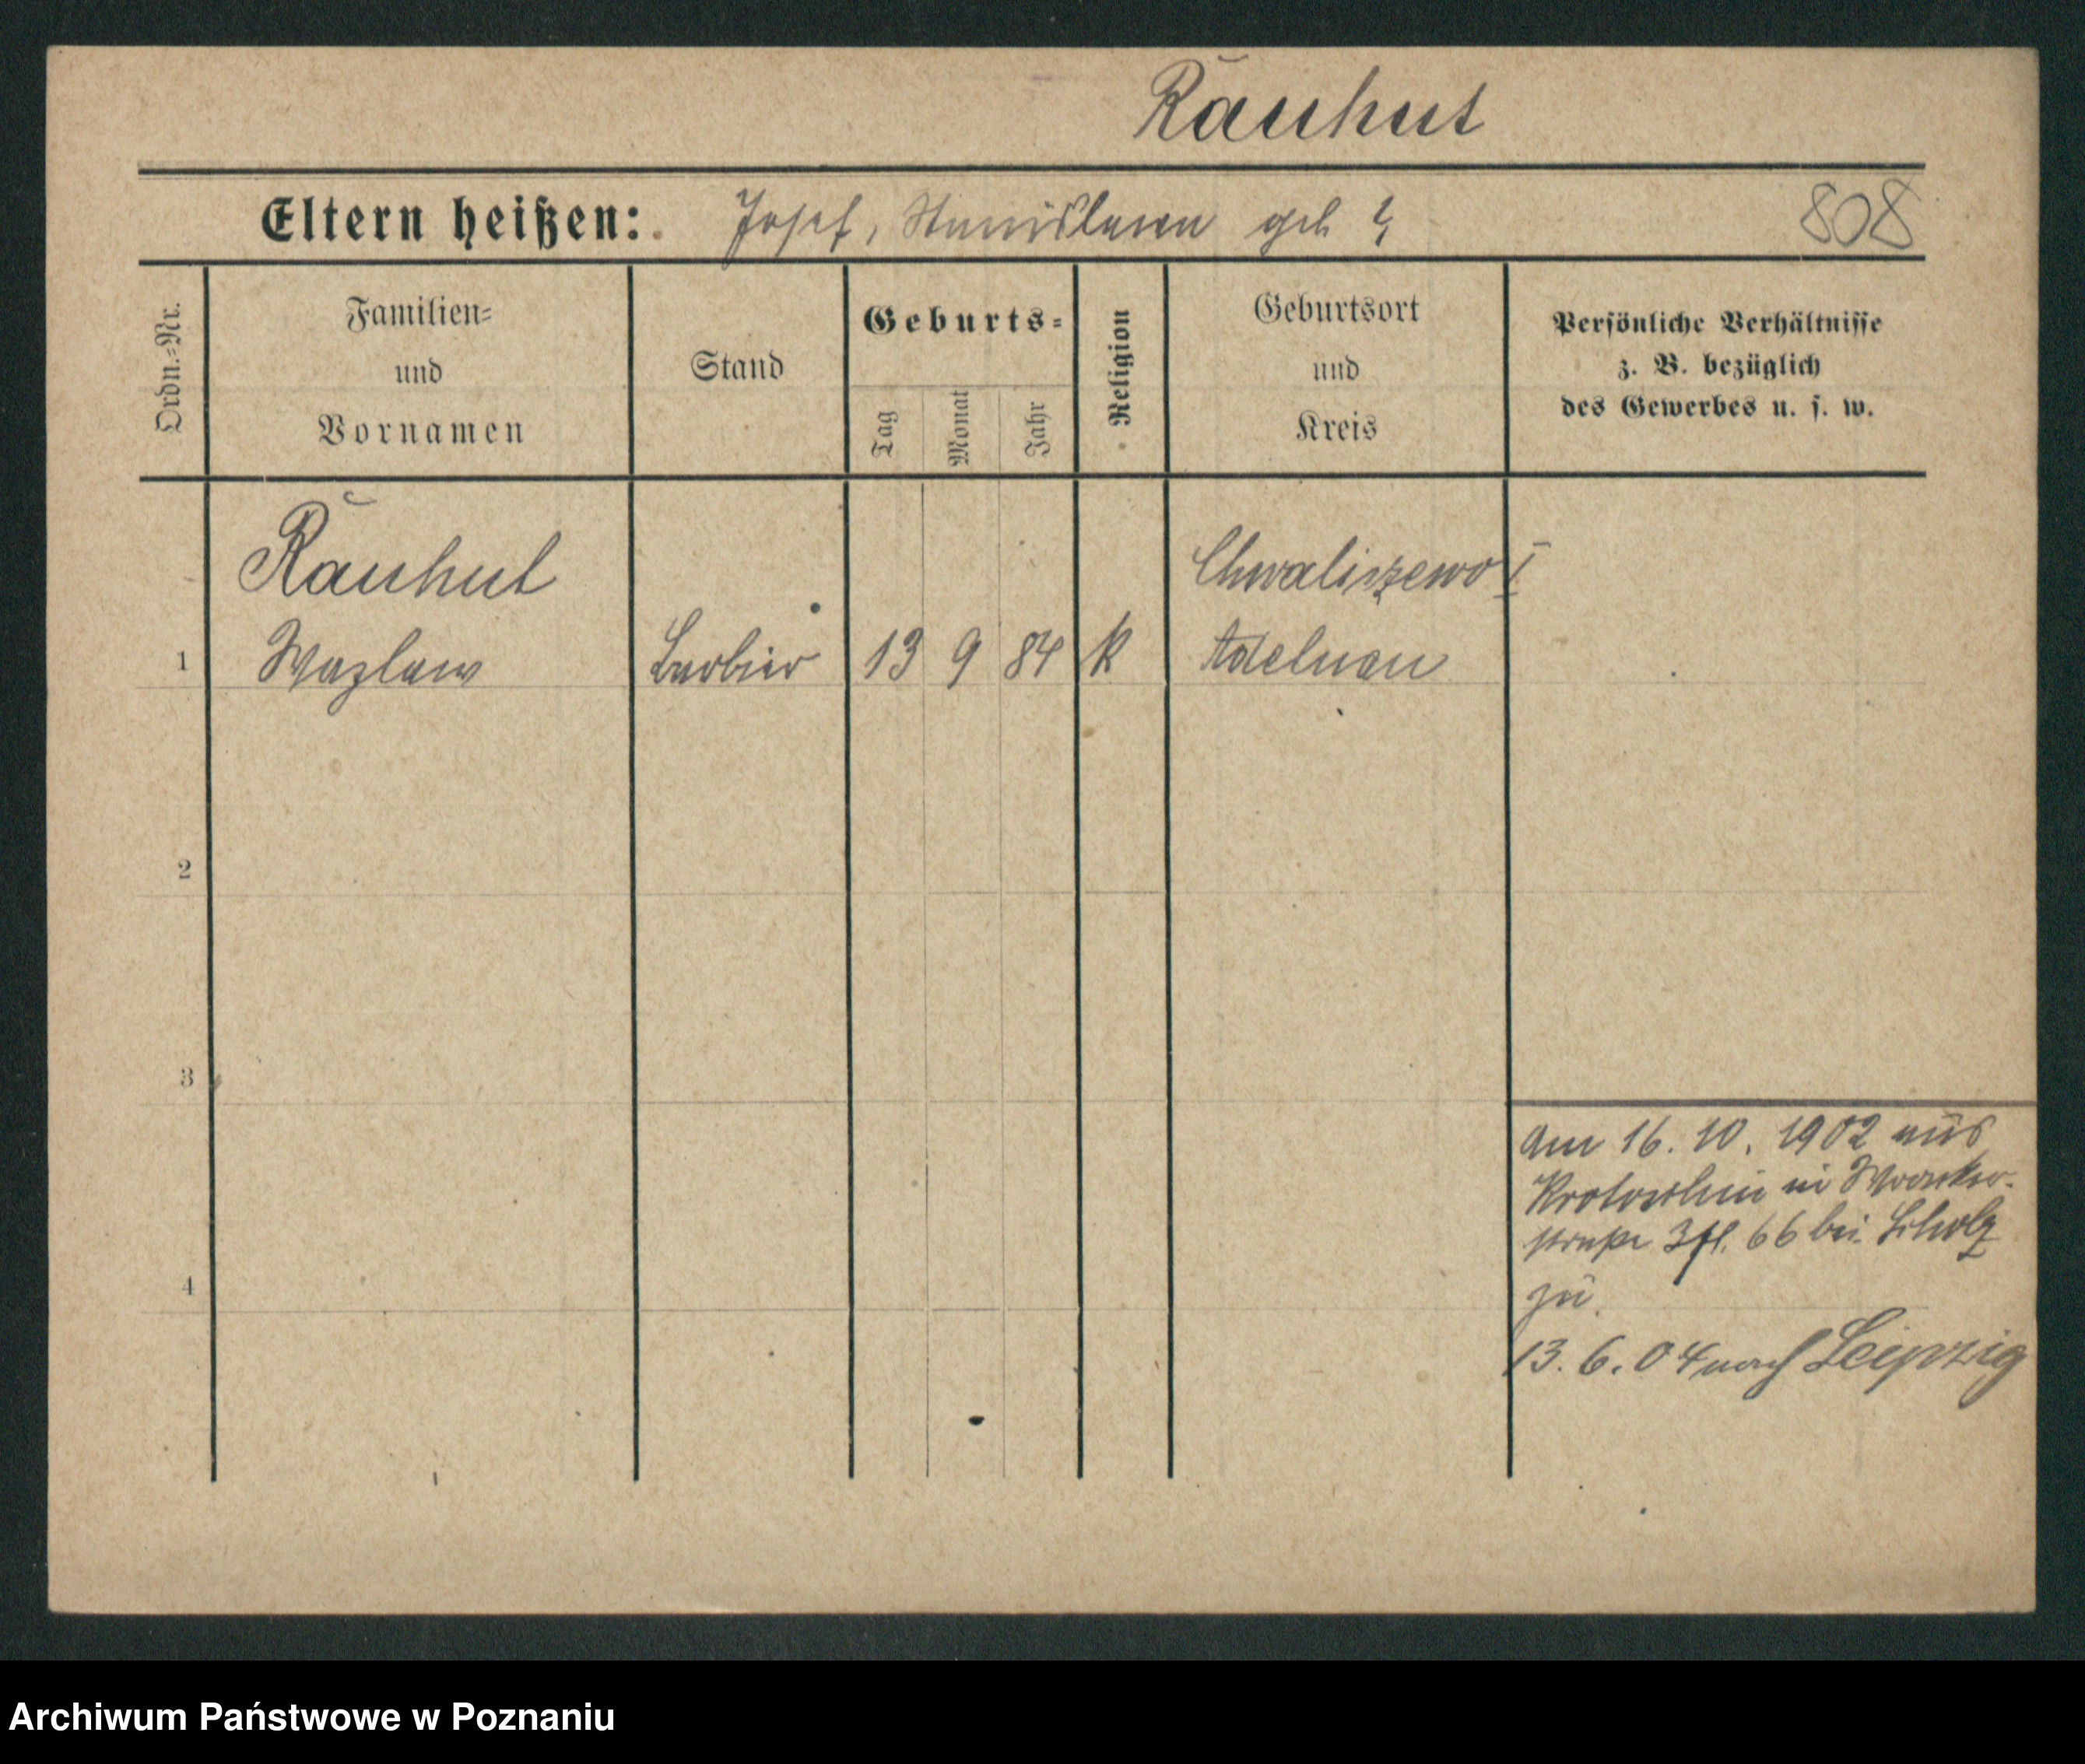 Rauhut
Eltern heißen: Josef, Stanislawa geb ?
808
Ordn.=Nr.
Familien=
und
Vornamen
Stand
Geburts=
Tag
Monat
Jahr
Religion
Geburtsort
und
Kreis
Persönliche Verhältnisse
z. B. bezüglich
des Gewerbes u. s. w.
Rauhut Chwaliszewo I
1 Wazlaw Barbier 13 9 84 K Adelnau
2
3
4
Am 16. 10. 1902 aus
Krotoschin in Wronker-
straße 3 fl. 66 bei Scholz
zu.
13. 6. 04 nach Leipzig
Archiwum Państwowe w Poznaniu